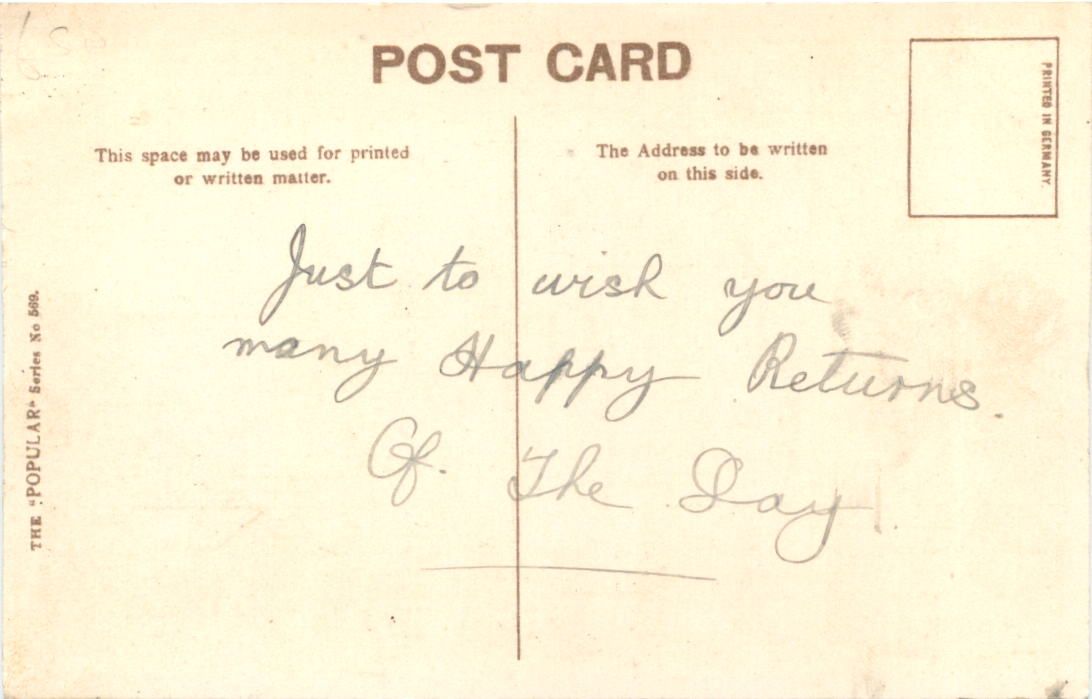 POST CARD
PRINTED IN GERMANY.
This space may be used for printed
or written matter.
The Address to be written
on this side.
Just to wish you
many Happy Returns.
Of. The Day
THE "POPULAR" Series No 569.